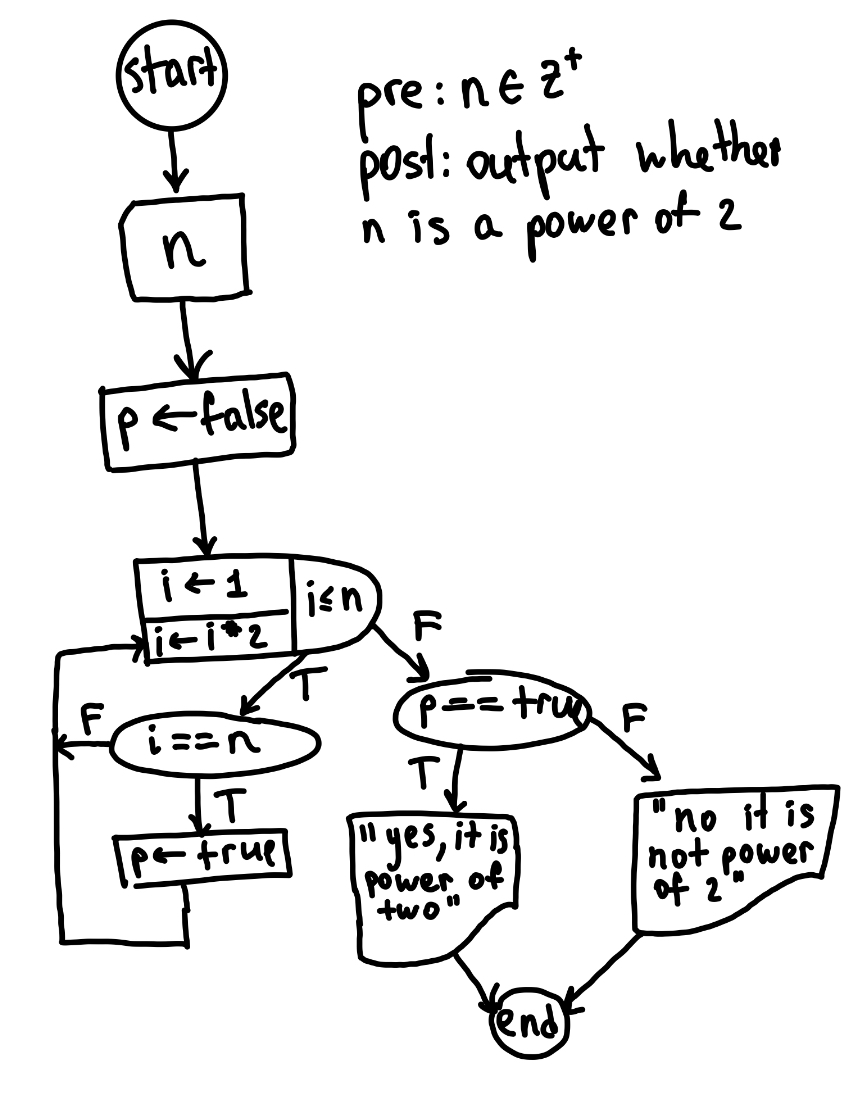 start
pre: n ∈ Z⁺
post: output whether
n is a power of 2
n
p ← false
i ← 1
i ≤ n
i ← i * 2
F
T
p == true
F
i == n
F
T
T
p ← true
"yes, it is
power of
two"
"no it is
not power
of 2"
end